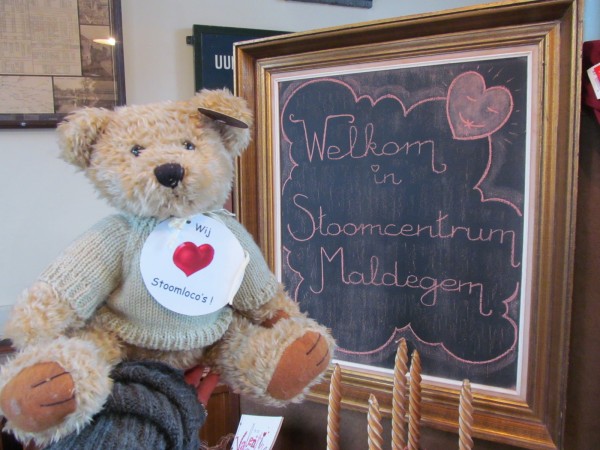 UU
Welkom
in
Stoomcentrum
Maldegem
Wij
Stoomloco's !